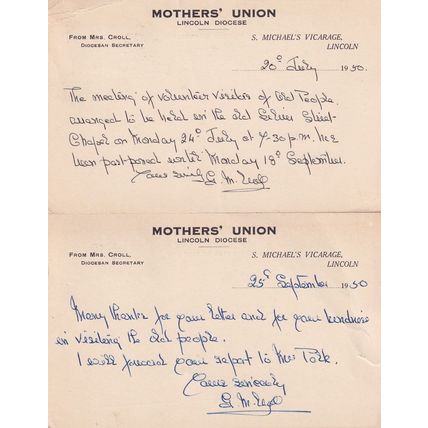 MOTHERS' UNION
LINCOLN DIOCESE
FROM MRS. CROLL,
DIOCESAN SECRETARY
S. MICHAEL'S VICARAGE,
LINCOLN
20 July 1950
The meeting of volunteer visitors of Old People
arranged to be held in the old Silver Street
Chapel on Monday 24 July at 7-30 p.m. has
been postponed until Monday 18 September.
G. M.
MOTHERS' UNION
LINCOLN DIOCESE
FROM MRS. CROLL,
DIOCESAN SECRETARY
S. MICHAEL'S VICARAGE,
LINCOLN
25 September 1950
Many thanks for your letter and for your kindness
in visiting the old people.
I will forward your report to Mrs
Yours sincerely
G. M.